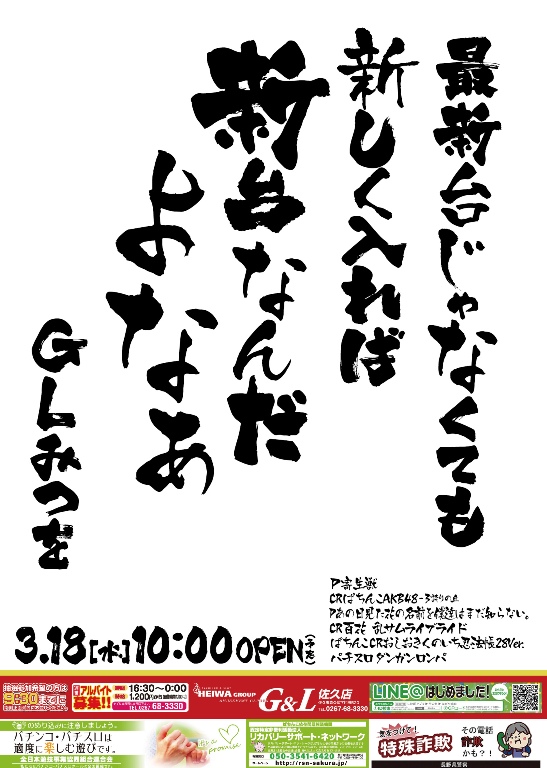 最新台じゃなくても
新しく入れば
新台なんだ
よなあ
GLみつを
P寄生獣
CRぱちんこAKB48-3 誇りの丘
Pあの日見た花の名前を僕達はまだ知らない。
CR百花繚乱サムライブライド
ぱちんこCRおしおきくのいち忍法帳28Ver.
パチスロ ダンガンロンパ
3.18[水]10:00 OPEN(予定)
アルバイト
募集!!
16:30~0:00
1,200
TEL 0267-68-3330
HEIWA GROUP
G&L 佐久店
TEL 0267-68-3330
LINE@はじめました!
のめり込みに注意しましょう。
パチンコ・パチスロは
適度に楽しむ遊びです。
全日本遊技事業協同組合連合会
promise
リカバリーサポート・ネットワーク
050-3541-6420
http://rsn-sakura.jp/
気をつけて!
特殊詐欺
その電話
詐欺
かも?!
長野県警察